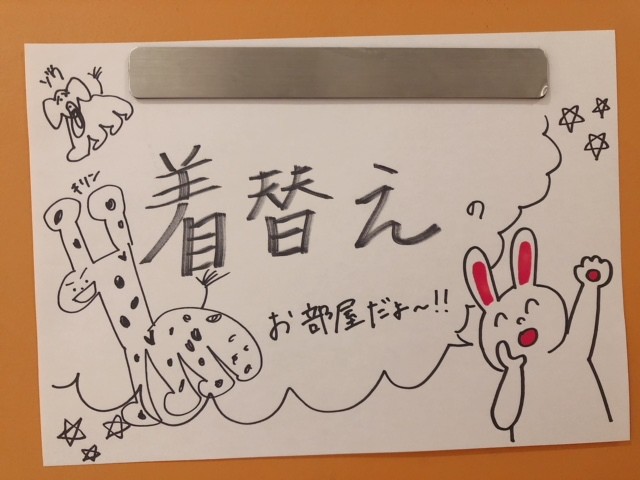 ゾウ
キリン
着替えの
お部屋だよ〜!!